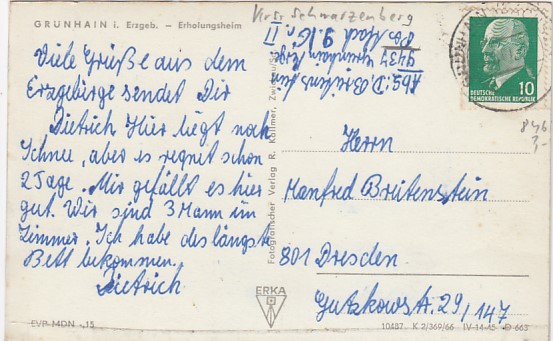 GRÜNHAIN i. Erzgeb. – Erholungsheim
Viele Grüße aus dem
Erzgebirge sendet Dir
Dietrich Hier liegt noch
Schnee, aber es regnet schon
2 Tage. Mir gefällt es hier
gut. Wir sind 3 Mann im
Zimmer. Ich habe des längste
Bett bekommen.
Dietrich
EVP MDN -,15
Krsr Schwarzenberg
Abs: D.
9437 Grünhain Erzg.
II
Fotografischer Verlag R. Kallmer, Zwickau/Sa.
ERKA
10
DEUTSCHE
DEMOKRATISCHE REPUBLIK
Herrn
Manfred Breitenstein
801 Dresden
Gutzkowstr. 29/147
10487 K 2/369/66 IV-14-45 D 665